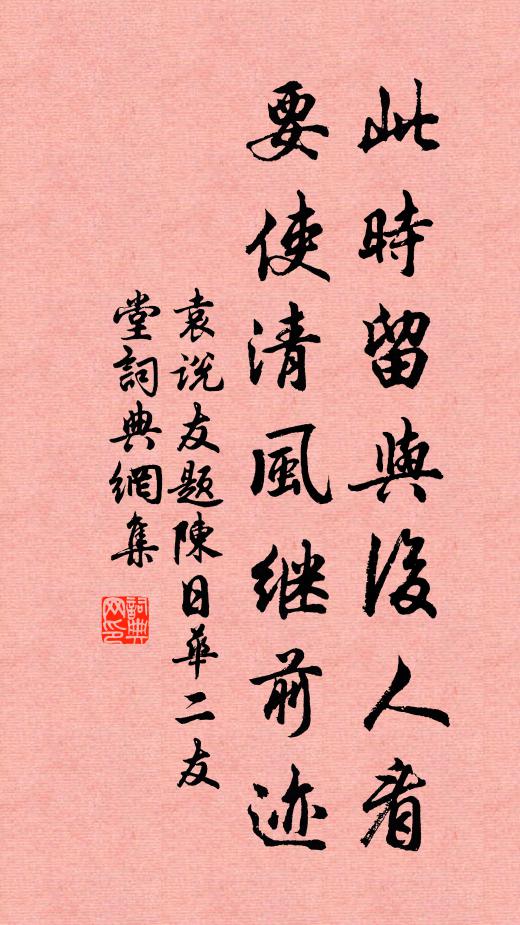 此時留與後人看
要使清風继前迹
袁说友题陳日華二友
堂詞典網集
詞典网印